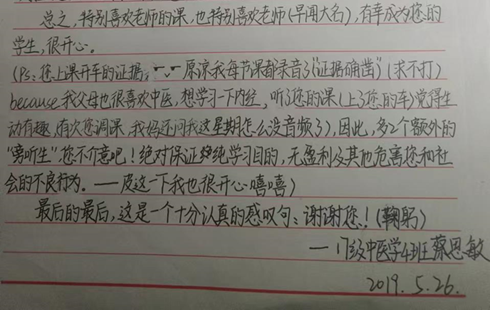 总之，特别喜欢老师的课，也特别喜欢老师(早闻大名)，有幸成为您的
学生，很开心。
(Ps：您上课开车的证据，一一原谅我每节课都录音了"证据确凿")(求不打)
because我父母也很喜欢中医，想学习一下内经，听了您的课(上了您的车)觉得生
动有趣，有次您调课，我妈还问我这星期怎么没音频了)，因此，多了2个额外的
"旁听生"您不介意吧！绝对保证单纯学习目的，无盈利及其他危害您和社
会的不良行为。——皮这一下我也很开心嘻嘻)
最后的最后，这是一个十分认真的感叹句：谢谢您！(鞠躬)
—17级中医学4班蔡恩敏
2019.5.26.